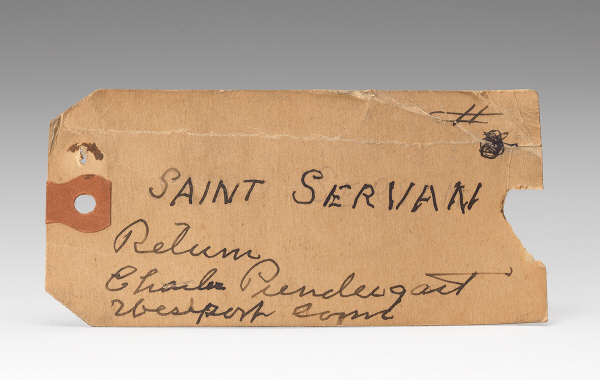 #
SAINT SERVAN
Return
Charles Prendergast
Westport Conn